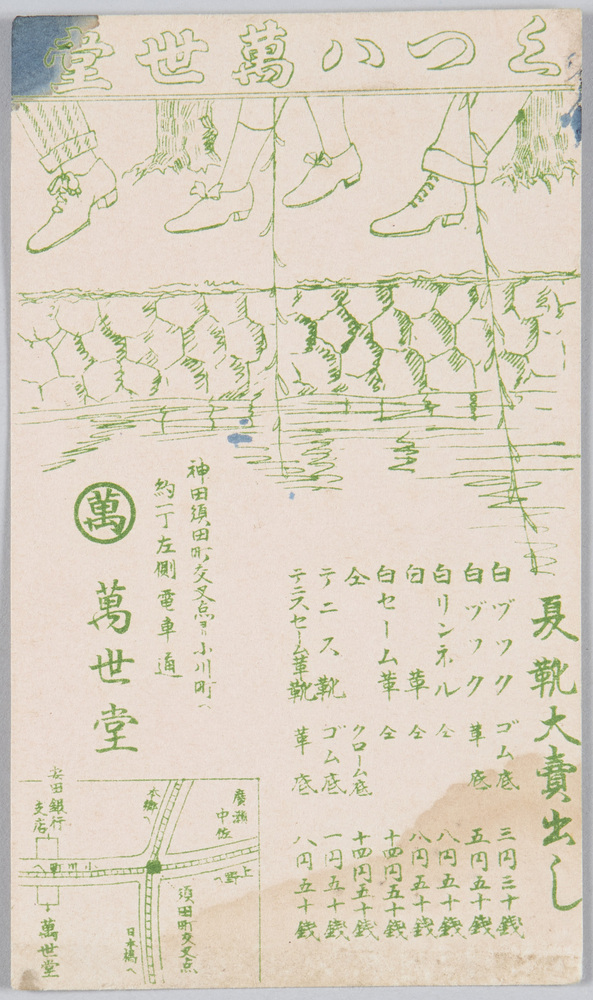 くつハ萬世堂
夏靴大賣出し
白ヅック ゴム底 三円三十銭
白ヅック 革底 五円五十銭
白リンネル 仝 八円五十銭
白革 仝 八円五十銭
白セーム革 仝 十四円五十銭
仝 クローム底 十四円五十銭
テニス靴 ゴム底 一円五十銭
テニスセーム革靴 革底 八円五十銭
神田須田町交叉点ヨリ小川町へ
約一丁左側電車通
萬
萬世堂
廣瀬
中佐
上野へ
本郷へ
須田町交叉点
日本橋へ
小川町へ
安田銀行
支店
萬世堂